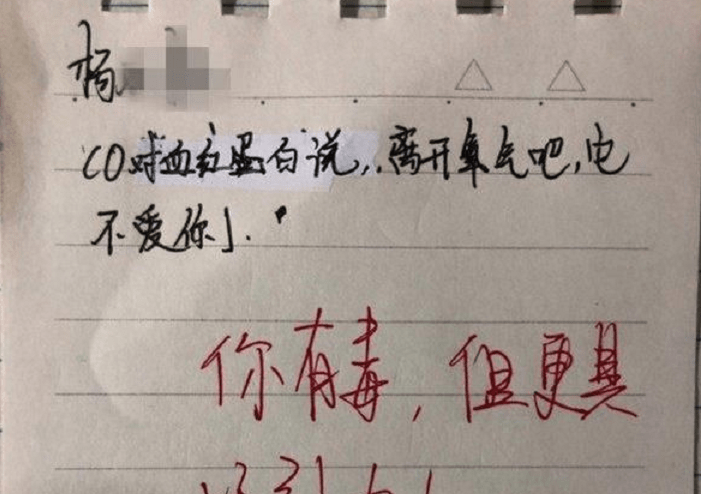 杨
CO对血红蛋白说，离开氧气吧，它
不爱你」.
你有毒，但更具